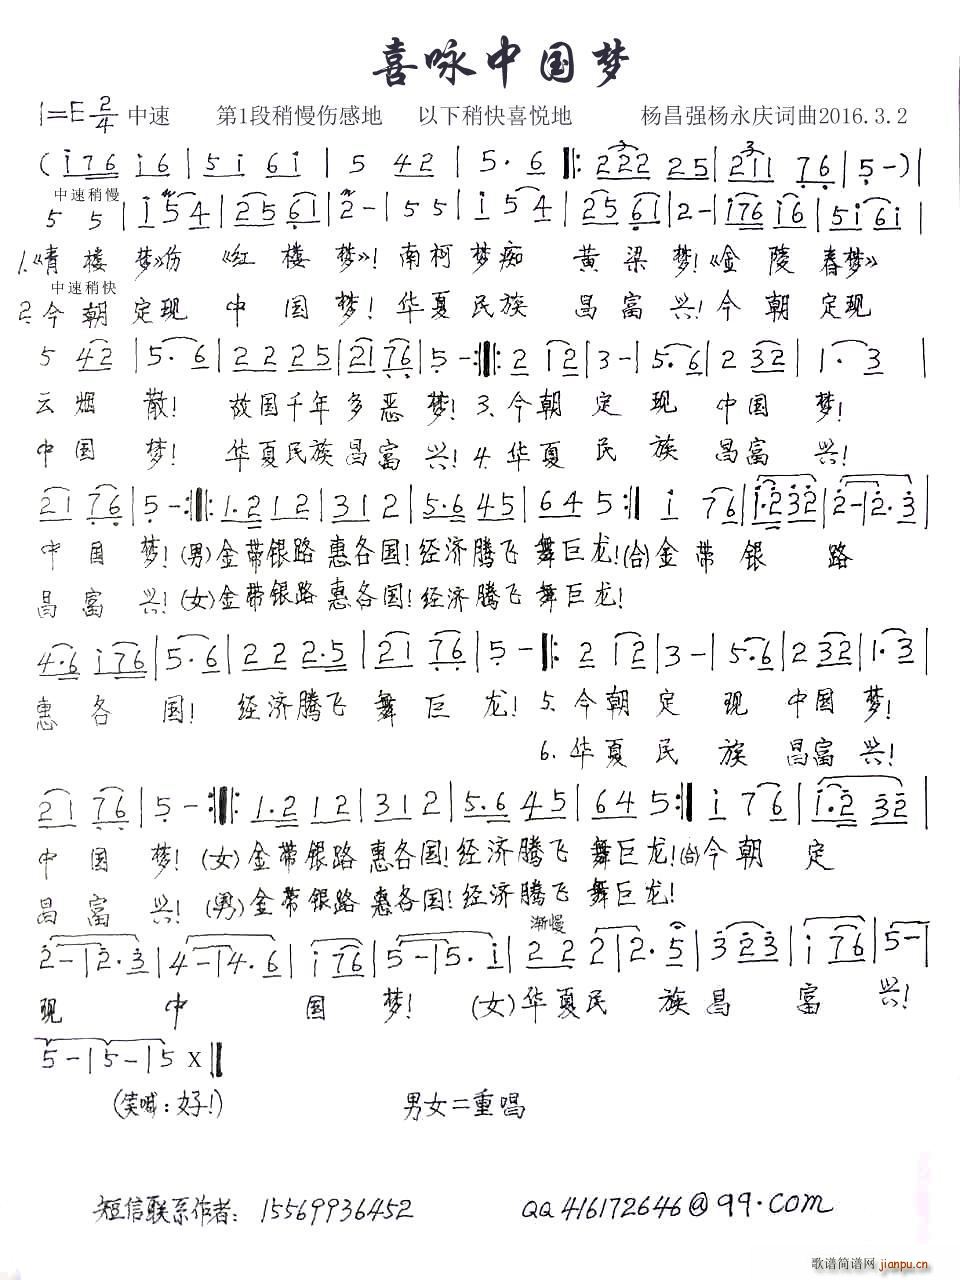 喜咏中国梦
1=E 2/4 中速 第1段稍慢伤感地 以下稍快喜悦地 杨昌强杨永庆词曲2016.3.2
( i 7 6 i 6 | 5 i 6 i | 5 4 2 | 5 · 6 |: 2 2 2 2 5 | 2 1 1 7 6 | 5 - ) |
中速稍慢
5 5 | i 5 4 | 2 5 6 1 | 2 - | 5 5 | i 5 4 | 2 5 6 1 | 2 - | i 7 6 i 6 | 5 i 6 i |
1.《青楼梦》伤《红楼梦》! 南柯梦痴 黄梁梦!《金陵春梦》
中速稍快
2. 今朝定现中国梦! 华夏民族昌富兴! 今朝定现
5 4 2 | 5 · 6 | 2 2 2 5 | 2 1 7 6 | 5 - :|: 2 1 2 | 3 - | 5 · 6 | 2 3 2 | 1 · 3 |
云烟散! 故国千年多恶梦! 3. 今朝定现中国梦!
中国梦! 华夏民族昌富兴! 4. 华夏民族昌富兴!
2 1 7 6 | 5 - :|: 1 · 2 1 2 | 3 1 2 | 5 · 6 4 5 | 6 4 5 :| i 7 6 | i · 2 3 2 | 2 - | 2 · 3 |
中国梦! (男)金带银路惠各国! 经济腾飞舞巨龙! (合)金带银路
昌富兴! (女)金带银路惠各国! 经济腾飞舞巨龙!
4 · 6 i 7 6 | 5 · 6 | 2 2 2 · 5 | 2 1 7 6 | 5 - |: 2 1 2 | 3 - | 5 · 6 | 2 3 2 | 1 · 3 |
惠各国! 经济腾飞舞巨龙! 5. 今朝定现中国梦!
6. 华夏民族昌富兴!
2 1 7 6 | 5 - :|: 1 · 2 1 2 | 3 1 2 | 5 · 6 4 5 | 6 4 5 :| i 7 6 | i · 2 3 2 |
中国梦! (女)金带银路惠各国! 经济腾飞舞巨龙! (合)今朝定
昌富兴! (男)金带银路惠各国! 经济腾飞舞巨龙!
渐慢
2 - | 2 · 3 | 4 - | 4 · 6 | i 7 6 | 5 - | 5 · i | 2 2 2 | 2 · 5 | 3 2 3 | i 7 6 | 5 - |
现中国梦! (女)华夏民族昌富兴!
5 - | 5 - | 5 X ‖
(笑喊:好!) 男女二重唱
短信联系作者: 15569936452 QQ416172646@99.com
歌谱简谱网 jianpu.cn